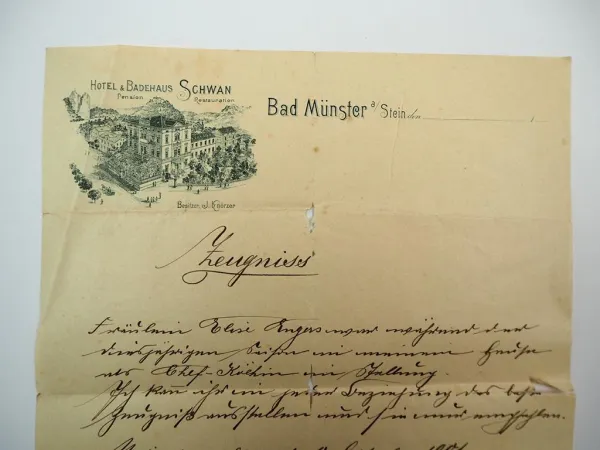 HOTEL & BADEHAUS SCHWAN
Pension Restauration
Bad Münster a/Stein, den
Besitzer: J. Knörzer
Zeugniss
Fräulein Elise Engers war während der
diesjährigen Saison in meinem Hause
als Chef-Köchin in Stellung.
Ich kann ihr in jeder Beziehung das beste
Zeugniß ausstellen und sie nur empfehlen.